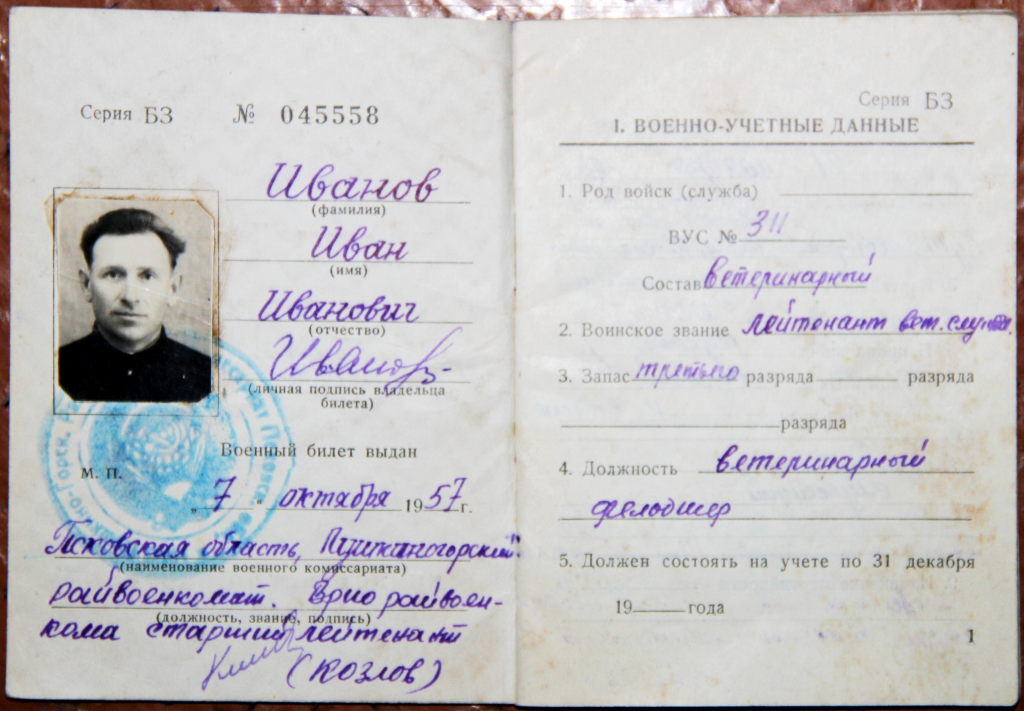 Серия БЗ № 045558
Иванов
(фамилия)
Иван
(имя)
Иванович
(отчество)
Иванов
(личная подпись владельца
билета)
Военный билет выдан
М. П.
„ 7 “ октября 1957 г.
Псковская область, Пушкиногорский
(наименование военного комиссариата)
райвоенкомат. Врио райвоен-
(должность, звание, подпись)
кома старший лейтенант
(Козлов)
Серия БЗ
I. ВОЕННО-УЧЕТНЫЕ ДАННЫЕ
1. Род войск (служба)
ВУС № 311
Состав ветеринарный
2. Воинское звание лейтенант вет. службы
3. Запас третьего разряда разряда
разряда
4. Должность ветеринарный
фелодшер
5. Должен состоять на учете по 31 декабря
19 года
1